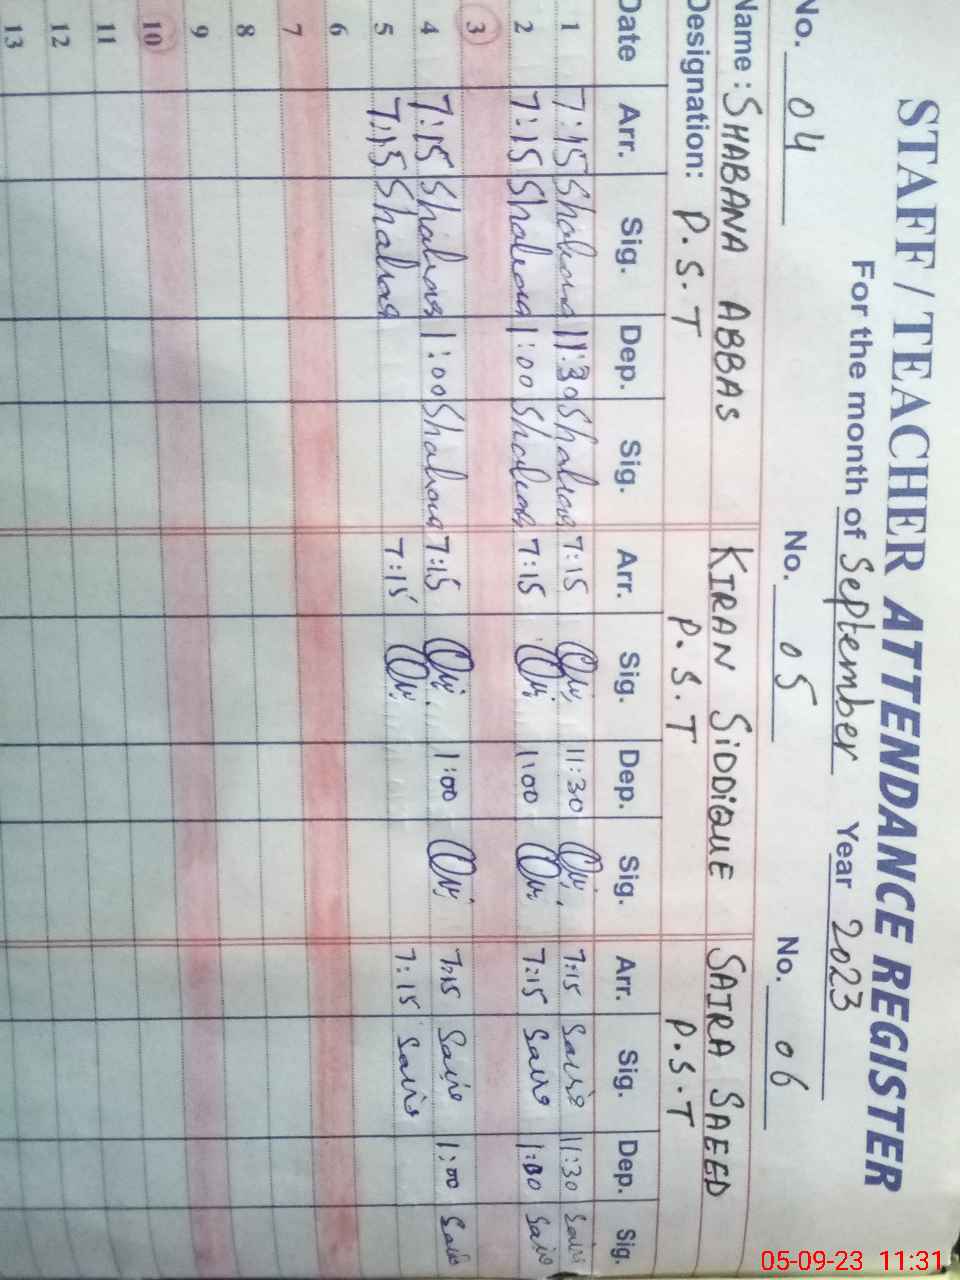 STAFF / TEACHER ATTENDANCE REGISTER
For the month of September Year 2023
No. 04 No. 05 No. 06
Name : SHABANA ABBAS KIRAN SiDDiQUE SAIRA SAEED
Designation: P.S.T P.S.T P.S.T
Date Arr. Sig. Dep. Sig. Arr. Sig. Dep. Sig. Arr. Sig. Dep. Sig.
1 7:15 Shabana 11:30 Shabana 7:15 11:30 7:15 Saira 11:30 Saira
2 7:15 Shabana 1:00 Shabana 7:15 1:00 7:15 Saira 1:00 Saira
3
4 7:15 Shabana 1:00 Shabana 7:15 1:00 7:15 Saira 1:00 Saira
5 7:15 Shabana 7:15 7:15 Saira
6
7
8
9
10
11
12
13
05-09-23 11:31